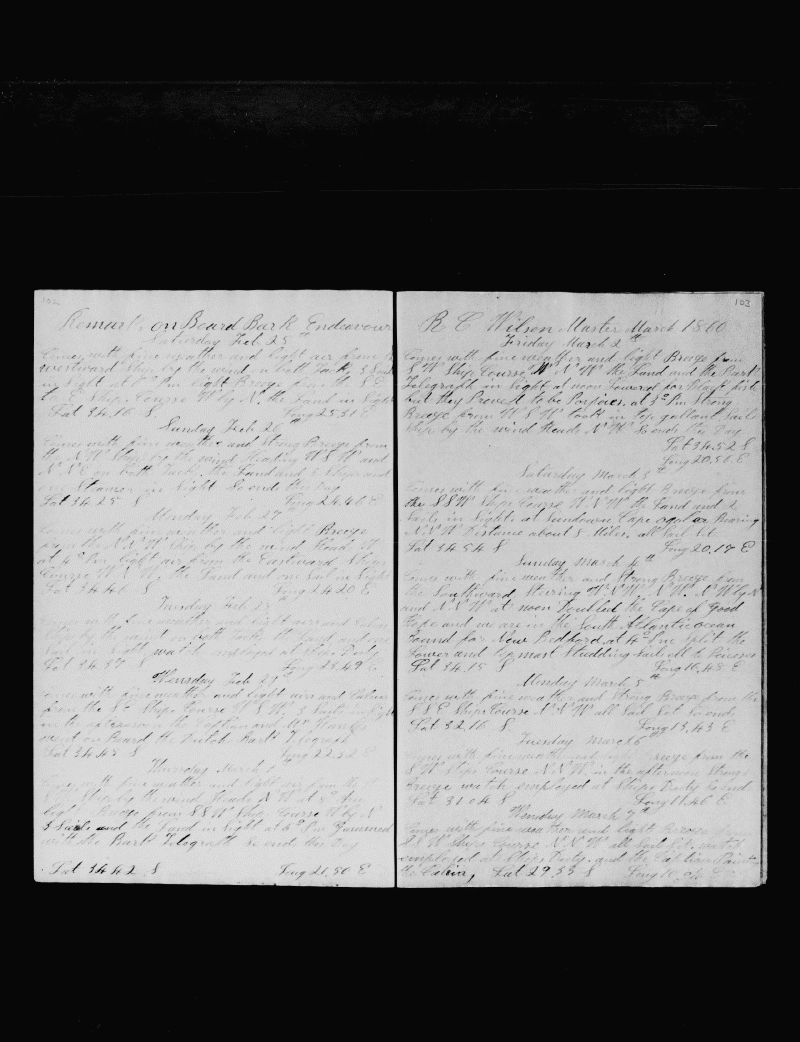 102
Remarks on Board Bark Endeavour
Saturday Feb 25th
Comes with fine weather and light air from the
westward Ship by the wind on both Tacks, 3 Sails
in Sight at 8 Pm light Breeze from the S E
to E Ship Course W by N, the Land in Sight
Lat 34.16 S Long 25.31 E
Sunday Feb 26th
Comes with fine weather and Strong Breeze from
the N W Ship by the wind Heading W S W and
N N E on both Tacks the Land and Ships and
one Steamer in Sight So ends the Day
Lat 34.25 S Long 24.46 E
Monday Feb 27th
Comes with fine weather and light Breeze
from the N N W Ship by the wind Heads W
at 4 Pm light air from the Eastward Ships
Course W N W, the Land and one Sail in Sight
Lat 34.46 S Long 24.20 E
Tuesday Feb 28
Comes with fine weather and light airs and Calms
Ship by the wind on both Tacks the Land and one
Sail in Sight watch employed at Ships Duty
Lat 34.37 S Long 23.49 E
Wensday Feb 29th
Comes with fine weather and light airs and Calms
from the S E Ships Course W S W 3 Sails in Sight
in the afternoon the Captain and
went on Board the Dutch Bark Telegraph
Lat 34.48 S Long 22.52 E
Thursday March 1
Comes with fine weather and light air from the
Ship by the wind Heads N W at 8 Pm
light Breeze from S S W Ship Course W by N
3 Sails and the Land in Sight at 5 Pm Gammed
with the Bark Telegraph So ends this Day
Lat 34.42 S Long 21.50 E
103
R C Wilson Master March 1860
Friday March 2th
Comes with fine weather and light Breeze from
S W Ship Course W N W the Land and the Bark
Telegraph in Sight at noon Lowered for Black fish
but they Proved to be Porpoises, at 3 Pm Strong
Breeze from W S W took in top gallant Sail
Ship by the wind Heads N W So ends the Day
Lat 34.52 S
Long 20.51 E
Saturday March 3th
Comes with fine weather and light Breeze from
the S S W Ships Course W N W the Land and 2
Sails in Sight, at Sundown Cape Bearing
N N W Distance about 8 Miles, all Sail Set
Lat 34.54 S Long 20.17 E
Sunday March 4th
Comes with fine weather and Strong Breeze from
the Southward Steering W N W, N W, N W by N
and N N W at noon Doubled the Cape of Good
Hope and we are in the South Atlantic ocean
Bound for New Bedford, at 4 Pm split the
Lower and top mast Studding Sail all to Peices
Lat 34.15 S Long 18.48 E
Monday March 5th
Comes with fine weather and Strong Breeze from the
S S E Ships Course N N W all Sail Set So ends
Lat 32.16 S Long 13.43 E
Tuesday March 6th
Comes with fine weather and Breeze from the
S W Ships Course N N W, in the afternoon Strong
Breeze watch employed at Ships Duty So end
Lat 31.04 S Long 11.46 E
Wensday March 7th
Comes with fine weather and light Breeze from
S S W Ships Course N N W all Sail Set, watch
employed at Ships Duty, and the Captain Painting
the Cabin, Lat 29.33 S Long 10.